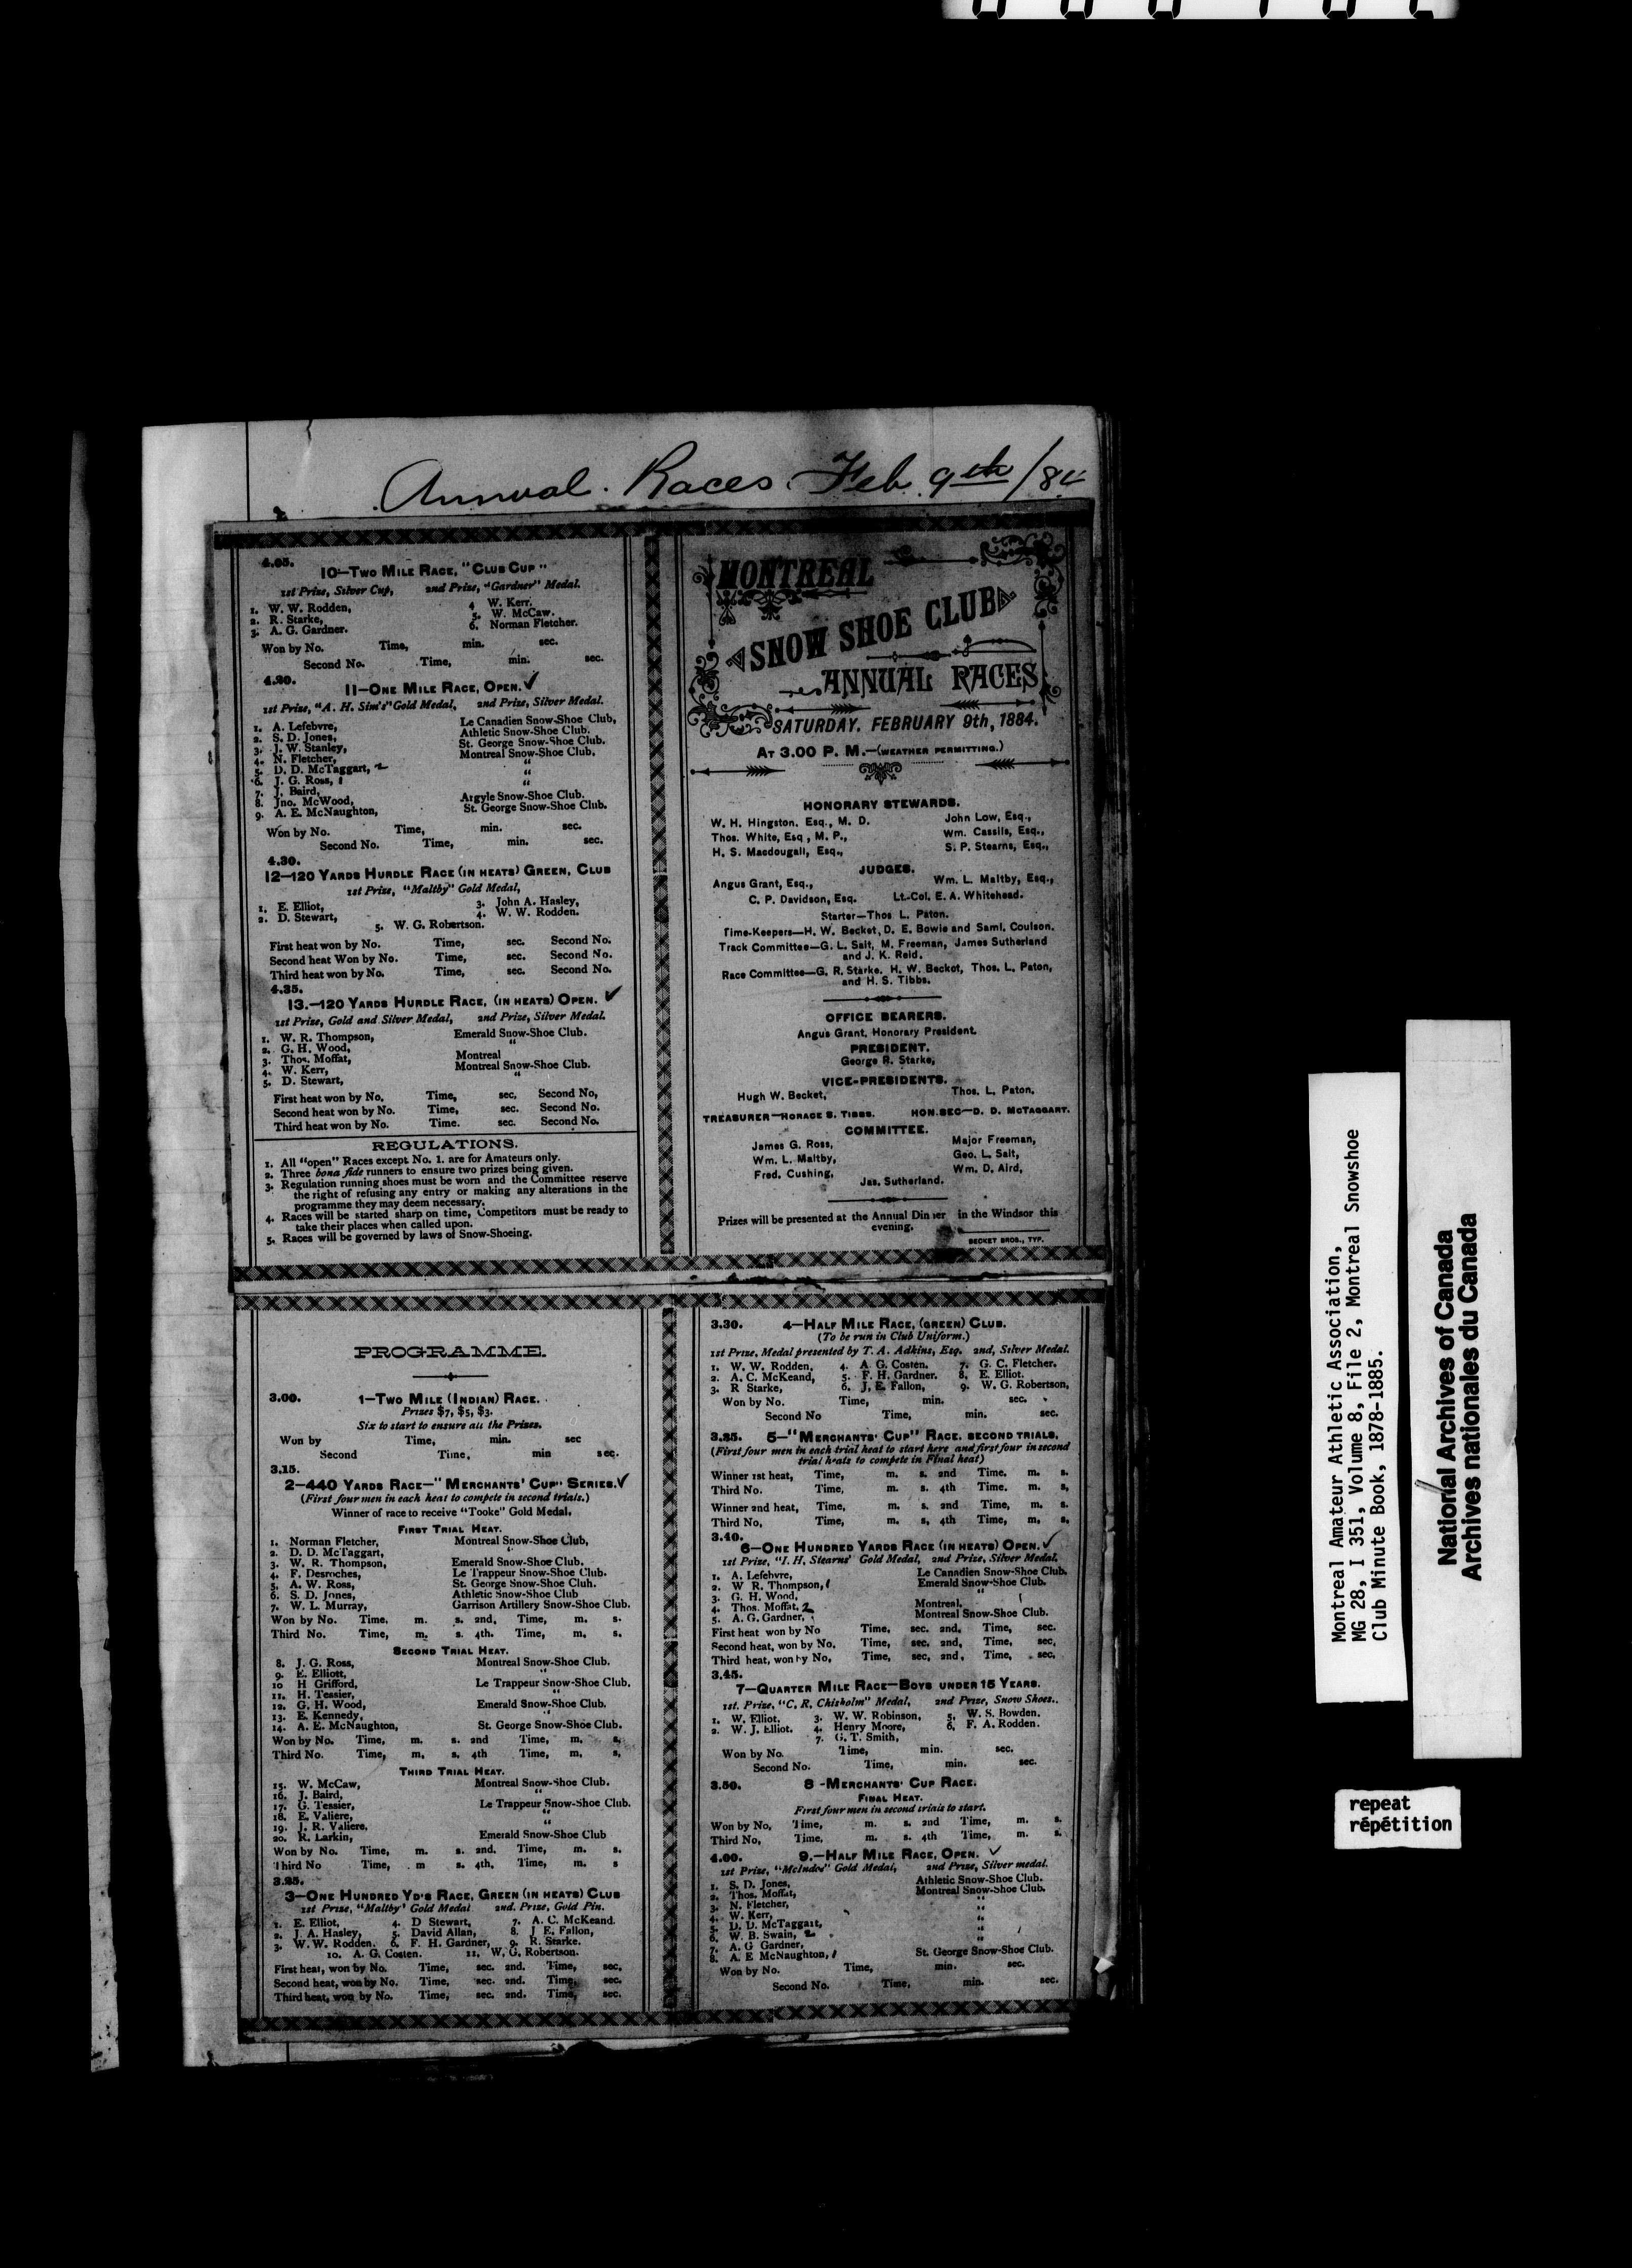 Annual. Races. Feb. 9th/84
4.05.
10—Two Mile Race, "Club Cup"
1st Prize, Silver Cup, 2nd Prize, "Gardner" Medal.
1. W. W. Rodden, 4 W. Kerr.
2. R. Starke, 5. W. McCaw.
3. A. G. Gardner. 6. Norman Fletcher.
Won by No. Time, min. sec.
Second No. Time, min. sec.
4.20.
11—One Mile Race, Open. ✓
1st Prize, "A. H. Sim's" Gold Medal, 2nd Prize, Silver Medal.
1. A. Lefebvre, Le Canadien Snow-Shoe Club,
2. S. D. Jones, Athletic Snow-Shoe Club.
3. J. W. Stanley, St. George Snow-Shoe Club.
4. N. Fletcher, Montreal Snow-Shoe Club.
5. D. D. McTaggart, 2 "
6. J. G. Ross, 1 "
7. J. Baird, "
8. Jno. McWood, Argyle Snow-Shoe Club.
9. A. E. McNaughton, St. George Snow-Shoe Club.
Won by No. Time, min. sec.
Second No. Time, min. sec.
4.30.
12—120 Yards Hurdle Race (in heats) Green, Club
1st Prize, "Maltby" Gold Medal,
1. E. Elliot, 3. John A. Hasley,
2. D. Stewart, 4. W. W. Rodden.
5. W. G. Robertson.
First heat won by No. Time, sec. Second No.
Second heat Won by No. Time, sec. Second No.
Third heat won by No. Time, sec. Second No.
4.35.
13.—120 Yards Hurdle Race, (in heats) Open. ✓
1st Prize, Gold and Silver Medal, 2nd Prize, Silver Medal.
1. W. R. Thompson, Emerald Snow-Shoe Club.
2. G. H. Wood, "
3. Thos. Moffat, Montreal
4. W. Kerr, Montreal Snow-Shoe Club.
5. D. Stewart, "
First heat won by No. Time, sec, Second No,
Second heat won by No. Time, sec. Second No.
Third heat won by No. Time. sec. Second No.
REGULATIONS.
1. All "open" Races except No. 1. are for Amateurs only.
2. Three bona fide runners to ensure two prizes being given.
3. Regulation running shoes must be worn and the Committee reserve
the right of refusing any entry or making any alterations in the
programme they may deem necessary.
4. Races will be started sharp on time, Competitors must be ready to
take their places when called upon.
5. Races will be governed by laws of Snow-Shoeing.
MONTREAL
SNOW SHOE CLUB
ANNUAL RACES
SATURDAY, FEBRUARY 9th, 1884.
At 3.00 P. M.—(weather permitting.)
HONORARY STEWARDS.
W. H. Hingston. Esq., M. D. John Low, Esq.,
Thos. White, Esq, M. P., Wm. Cassils, Esq.,
H. S. Macdougall, Esq., S. P. Stearns, Esq.,
JUDGES.
Angus Grant, Esq., Wm. L. Maltby, Esq.,
C. P. Davidson, Esq. Lt.-Col. E. A. Whitehead.
Starter—Thos L. Paton.
Time-Keepers—H. W. Becket, D. E. Bowie and Saml. Coulson.
Track Committee—G. L. Salt, M. Freeman, James Sutherland
and J. K. Reid.
Race Committee—G. R. Starke. H. W. Becket, Thos. L. Paton,
and H. S. Tibbs.
OFFICE BEARERS.
Angus Grant, Honorary President.
PRESIDENT.
George R. Starke,
VICE-PRESIDENTS.
Hugh W. Becket, Thos. L. Paton,
Treasurer—Horace S. Tibbs. Hon. Sec—D. D. McTaggart.
COMMITTEE.
James G. Ross, Major Freeman,
Wm. L. Maltby, Geo. L. Salt,
Fred. Cushing, Wm. D. Aird,
Jas. Sutherland.
Prizes will be presented at the Annual Dinner in the Windsor this
evening.
BECKET BROS., TYP.
PROGRAMME.
3.00. 1—Two Mile (Indian) Race.
Prizes $7, $5, $3.
Six to start to ensure all the Prizes.
Won by Time, min. sec
Second Time, min sec.
3.15.
2—440 Yards Race—"Merchants' Cup" Series. ✓
(First four men in each heat to compete in second trials.)
Winner of race to receive "Tooke" Gold Medal,
First Trial Heat.
1. Norman Fletcher, Montreal Snow-Shoe Club,
2. D. D. McTaggart, "
3. W. R. Thompson, Emerald Snow-Shoe Club.
4. F. Desroches, Le Trappeur Snow-Shoe Club.
5. A. W. Ross, St. George Snow-Shoe Club.
6. S. D. Jones, Athletic Snow-Shoe Club
7. W. L. Murray, Garrison Artillery Snow-Shoe Club.
Won by No. Time. m. s. 2nd, Time, m. s.
Third No. Time, m. s. 4th. Time, m, s.
Second Trial Heat.
8. J. G. Ross, Montreal Snow-Shoe Club.
9. E. Elliott, "
10 H Grifford, Le Trappeur Snow-Shoe Club,
11. H. Tessier, "
12. G. H. Wood, Emerald Snow-Shoe Club.
13. E. Kennedy, "
14. A. E. McNaughton, St. George Snow-Shoe Club.
Won by No. Time, m. s. 2nd Time, m. s,
Third No. Time, m, s. 4th Time, m, s,
Third Trial Heat.
15. W. McCaw, Montreal Snow-Shoe Club.
16. J. Baird, "
17. G. Tessier, Le Trappeur Snow-Shoe Club.
18. E. Valiere, "
19. J. R. Valiere, "
20. R. Larkin, Emerald Snow-Shoe Club
Won by No. Time, m. s. 2nd. Time, m. s.
Third No Time, m s. 4th, Time, m. s
3.25.
3—One Hundred Yd's Race, Green (in heats) Club
1st Prize, "Maltby' Gold Medal 2nd. Prize, Gold Pin.
1. E. Elliot, 4. D Stewart, 7. A. C. McKeand.
2. J. A. Hasley, 5. David Allan, 8. J E. Fallon,
3. W. W. Rodden. 6. F. H. Gardner, 9. R. Starke.
10. A. G. Costen. 11. W. G. Robertson.
First heat, won by No. Time, sec. 2nd. Time, sec,
Second heat, won by No. Time, sec. 2nd. Time, sec.
Third heat, won by No. Time, sec. 2nd. Time, sec.
3.30. 4—Half Mile Race, (green) Club.
(To be run in Club Uniform.)
1st Prize, Medal presented by T. A. Adkins, Esq. 2nd, Silver Medal.
1. W. W. Rodden, 4. A. G. Costen. 7. G. C. Fletcher.
2. A. C. McKeand, 5. F. H. Gardner. 8, E. Elliot.
3. R Starke, 6. J. E. Fallon, 9. W. G. Robertson,
Won by No. Time, min. sec.
Second No Time, min. sec.
3.35. 5—"Merchants' Cup" Race, second trials,
(First four men in each trial heat to start here and first four in second
trial heats to compete in Final heat)
Winner 1st heat, Time, m. s. 2nd Time. m. s.
Third No. Time, m. s. 4th Time. m. s,
Winner 2nd heat, Time, m. s. 2nd Time, m, s.
Third No, Time, m. s, 4th Time, m, s,
3.40.
6—One Hundred Yards Race (in heats) Open. ✓
1st Prize, "J. H. Stearns' Gold Medal, 2nd Prize, Silver Medal,
1. A. Lefebvre, Le Canadien Snow-Shoe Club.
2. W R. Thompson, 1 Emerald Snow-Shoe Club.
3. G. H. Wood, "
4. Thos. Moffat, 2 Montreal,
5. A. G. Gardner, Montreal Snow-Shoe Club.
First heat won by No Time. sec. 2nd. Time, sec.
Second heat, won by No. Time, sec. 2nd, Time, sec,
Third heat, won by No, Time, sec, 2nd, Time, sec,
3.45.
7—Quarter Mile Race—Boys under 15 Years.
1st. Prize, "C. R. Chisholm" Medal, 2nd Prize, Snow Shoes..
1. W. Elliot. 3. W. W. Robinson, 5, W. S. Bowden.
2. W. J. Elliot. 4. Henry Moore, 6, F. A. Rodden.
7. G. T. Smith,
Won by No. Time, min. sec.
Second No. Time, min. sec.
3.50. 8 -Merchants' Cup Race.
Final Heat.
First four men in second trials to start.
Won by No, Time, m. s. 2nd Time, m. s.
Third No, Time, m. s. 4th Time, m. s.
4.00. 9.—Half Mile Race, Open. ✓
1st Prize, "McIndoe" Gold Medal, 2nd Prize, Silver medal.
1. S. D. Jones, Athletic Snow-Shoe Club.
2. Thos. Moffat, Montreal Snow-Shoe Club.
3. N. Fletcher, "
4. W. Kerr, "
5. D. D. McTaggart, "
6. W. B. Swain, 2 "
7. A. G Gardner, "
8. A. E McNaughton, 1 St. George Snow-Shoe Club.
Won by No. Time, min. sec.
Second No. Time, min. sec.
Montreal Amateur Athletic Association,
MG 28, I 351, Volume 8, File 2, Montreal Snowshoe
Club Minute Book, 1878-1885.
National Archives of Canada
Archives nationales du Canada
repeat
répétition